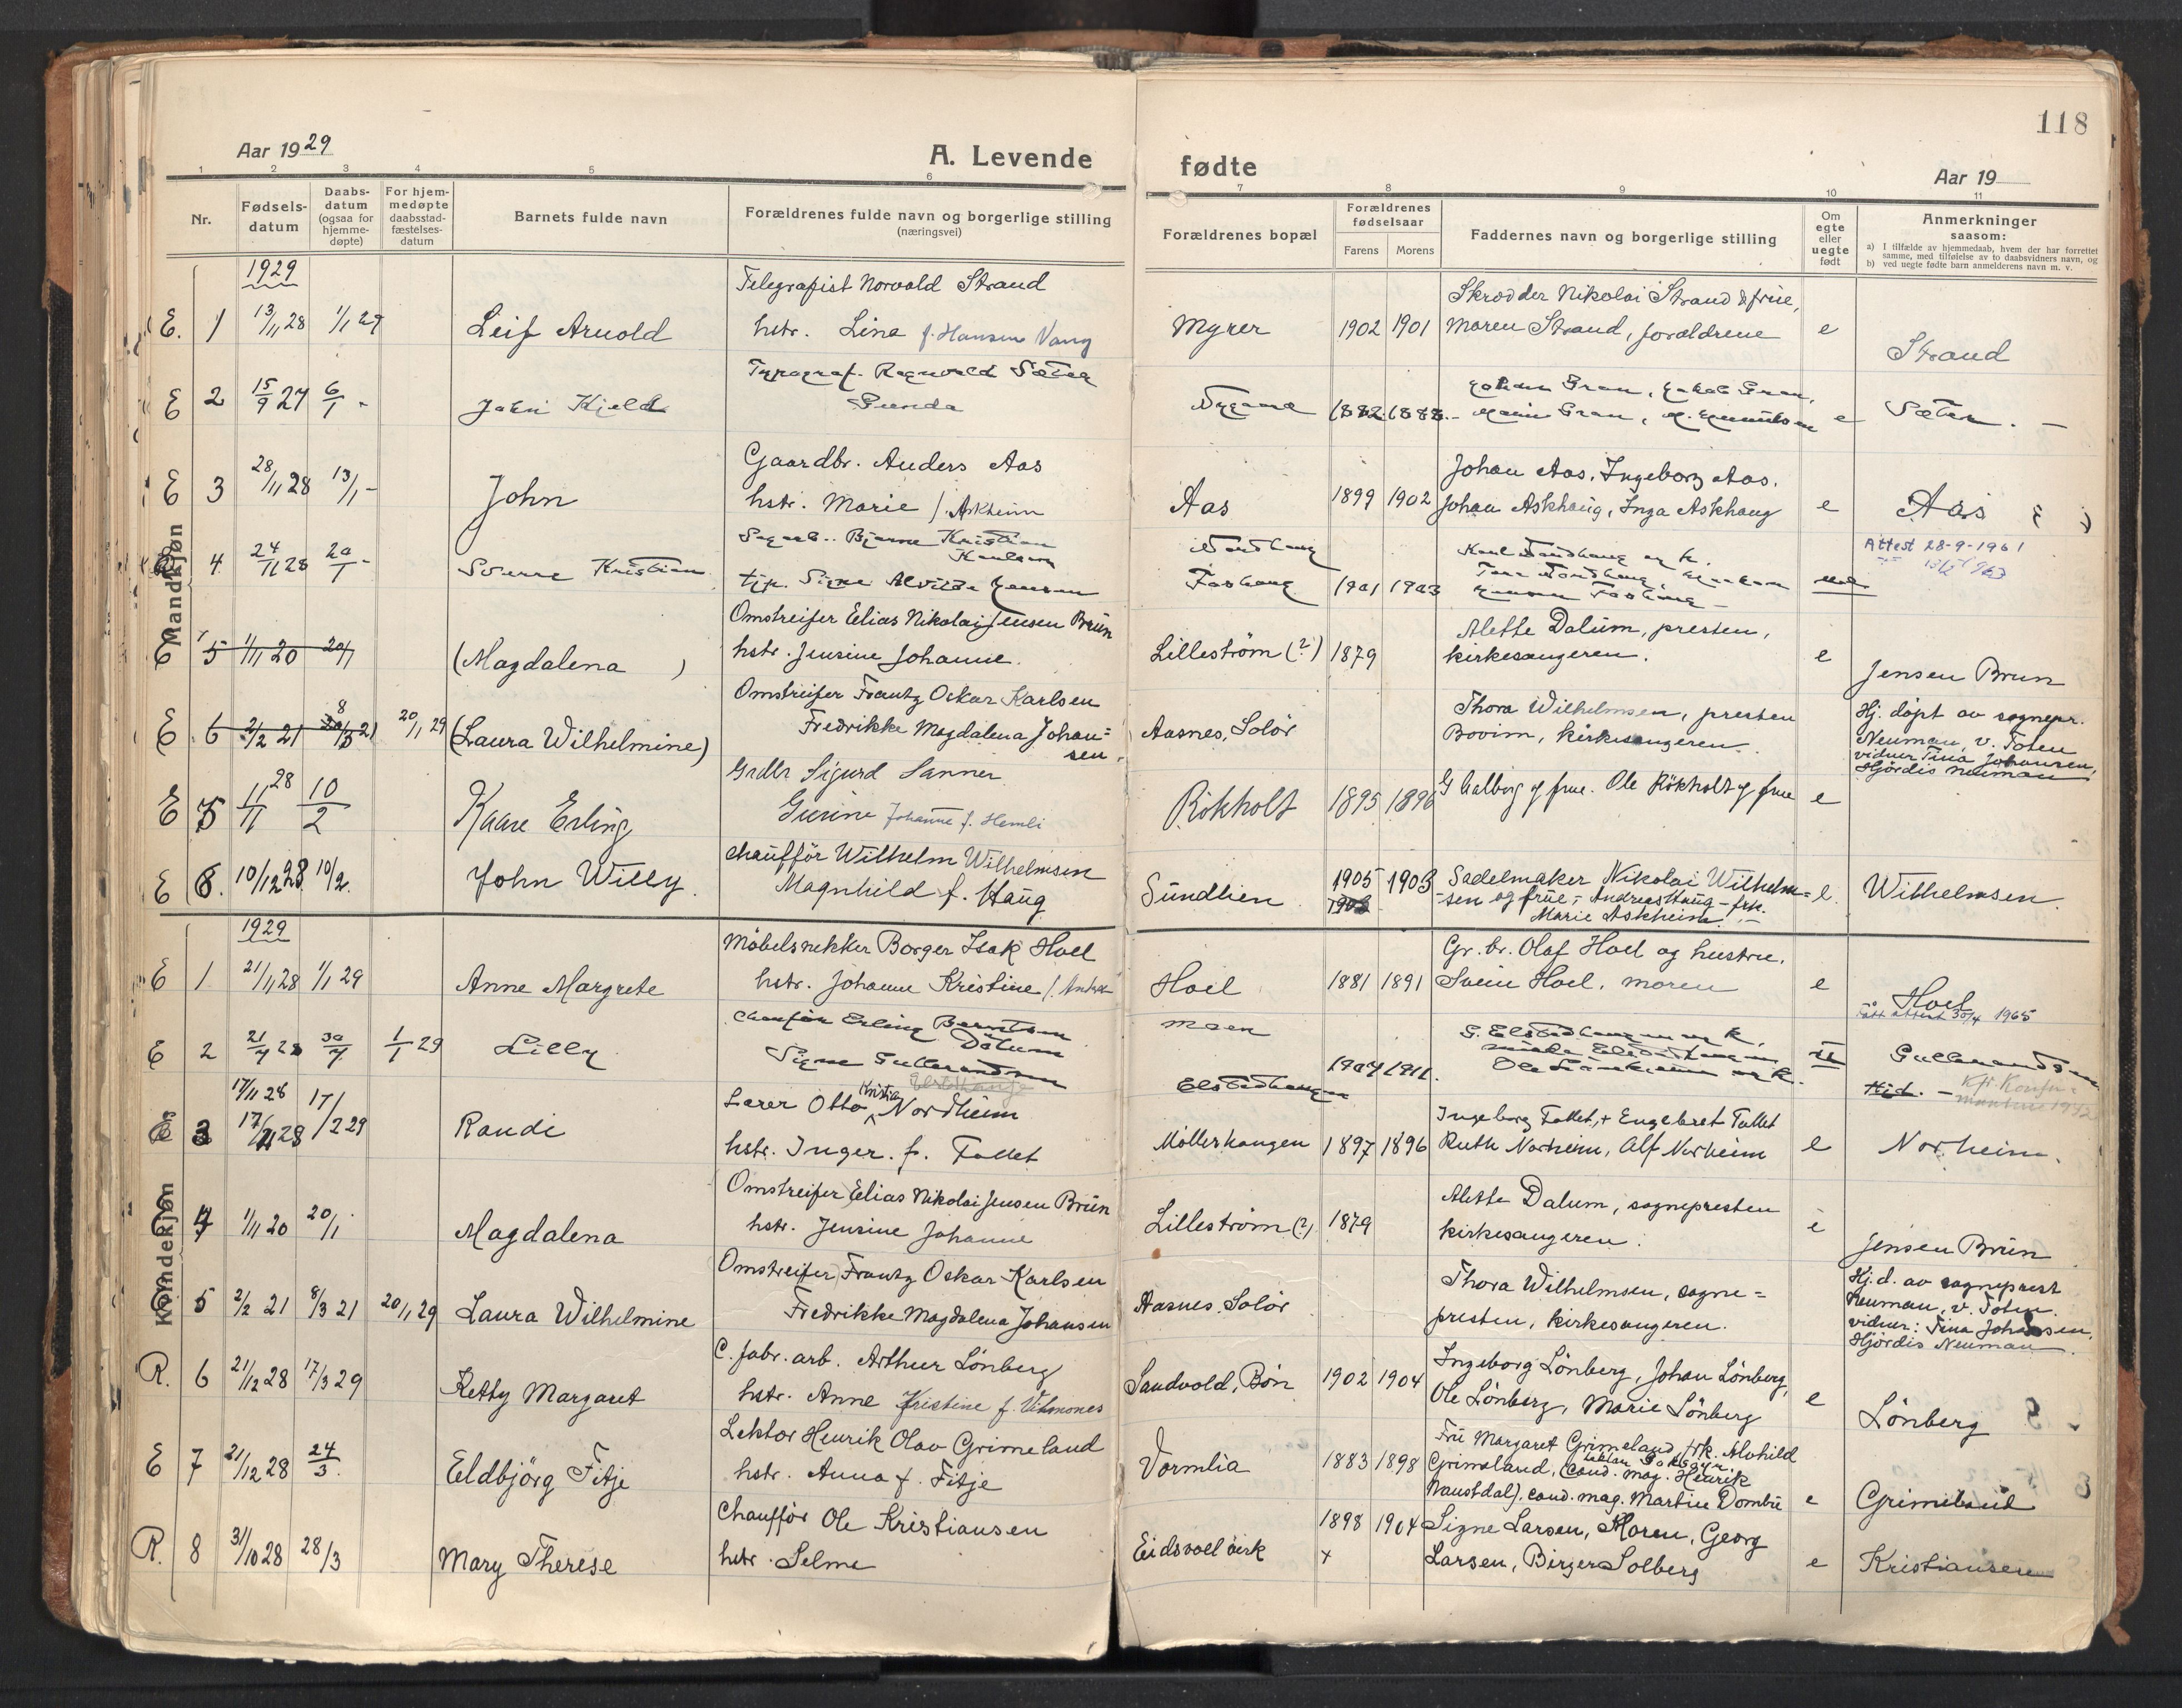 118
Aar 1929
A. Levende
fødte
Aar 19
1 2 3 4 5 6
7 8 9 10 11
Nr.
Fødsels-
datum
Daabs-
datum
(ogsaa for
hjemme-
døpte)
For hjem-
medøpte
daabsstad-
fæstelses-
datum
Barnets fulde navn
Forældrenes fulde navn og borgerlige stilling
(næringsvei)
Forældrenes bopæl
Forældrenes
fødselsaar
Farens Morens
Faddernes navn og borgerlige stilling
Om
egte
eller
uegte
født
Anmerkninger
saasom:
a) I tilfælde av hjemmedaab, hvem der har forrettet
samme, med tilføielse av to daabsvidners navn, og
b) ved uegte fødte barn anmelderens navn m. v.
Mandkjøn
1929
Telegrafist Norvald Strand
Skrædder Nikolai Strand & frue,
E. 1 13/11 28 1/1 29 Leif Arnold hstr. Line f. Hansen Vang Myrer 1902 1901 Maren Strand, forældrene e Strand
Typograf. Ragnvald Sæter
E 2 15/9 27 6/1 - John Kjeld Gunda 1882 Marie Gran, e Sæter. -
Gaardbr. Anders Aas
Johan Aas, Ingeborg Aas,
E 3 28/11 28 13/1 - John hstr. Marie f. Askheim Aas 1899 1902 Johan Askhaug, Inga Askhaug e Aas
Bjarne Kristian
Karlsen
Nordhaug
Karl Nordhaug og k.
Attest 28-9-1961
4 24/11 28 20/1 - Sverre Kristian tjp. Signe Alvilde Jensen Foshaug 1901 1903
Omstreifer Elias Nikolai Jensen Brun
Alette Dalum, presten,
E 5 1/11 20 20/1 (Magdalena) hstr. Jensine Johanne. Lilleström (?) 1879 kirkesangeren. e Jensen Brun
Omstreifer Frantz Oskar Karlsen
Thora Wilhelmsen, presten
Hj. döpt av sognepr.
E 6 2/2 21 8/3 21 20/1 29 (Laura Wilhelmine) Fredrikke Magdalena Johan=
sen.
Aasnes, Solör Bovim, kirkesangeren.
Neuman, v. Toten
vidner Tina Johansen,
Hjördis Neuman
Grdbr Sigurd Sanner
E 5 11/11 28 10/2 Kaare Erling Gurine Johanne f. Hemli Rökholt 1895 1896 G Aalborg og frue. Ole Rökholt og frue e
Chauffför Wilhelm Wilhelmsen
E 6. 10/12 28 10/2. John Willy. Magnhild f. Haug Sundlien 1905 1903 Sadelmaker Nikolai Wilhelm=
-sen og frue, - Andreas Haug - frk.
Marie Askheim. -
e. Wilhelmsen.
Kvindekjøn
1929
Möbelsnekker Borger Isak Hoel
Gr. br. Olaf Hoel og hustru.
E 1 21/11 28 1/1 29 Anne Margrete hstr. Johanne Kristine Hoel 1881 1891 Svein Hoel, moren e Hoel
attest 30/4 1965
Chauför Erling Berntsen
Dålum
Moen
E 2 21/7 28 30/7 1/1 29 Lilly Signe Gullerandsen Elstadhaugen 1907 1911.
Ole
Hjd. -
17/11 28
Lærer Otto Kristian Nordheim
Ingeborg Fallet, + Engebret Fallet
E 3 17/11 28 17/2 29 Randi hstr. Inger. f. Fallet Möllerhaugen 1897 1896 Ruth Norheim, Alf Norheim e Norheim.
Omstreifer Elias Nikolai Jensen Brun
Alette Dalum, sognepresten
4 1/11 20 20/1 Magdalena hstr. Jensine Johanne Lilleström (?) 1879 kirkesangeren. e Jensen Brun
Omstreifer Frantz Oskar Karlsen
Thora Wilhelmsen, sogne=
Hj. d. av sogneprest
5 2/2 21 8/3 21 20/1 29 Laura Wilhelmine Fredrikke Magdalena Johansen Aasnes, Solör presten, kirkesangeren.
Neuman, v. Toten.
vidner: Tina Johansen,
Hjördis Neuman.
C. fabr. arb. Arthur Lönberg
Ingeborg Lönberg, Johan Lönberg,
R. 6 21/12 28 17/3 29 Ketty Margaret hstr. Anne Kristine f. Vilmones Sandvold, Bön 1902 1904 Ole Lönberg, Marie Lönberg e Lönberg
Lektor Henrik Olav Grimeland
Fru Margaret Grimeland, frk. Alvhild
E 7 21/12 28 24/3. Eldbjörg Fitje hstr. Anna f. Fitje Vormlia 1883 1898 Grimeland, (cand. mag. Henrik
Naustdal). cand. mag. Martin Dombu e Grimeland
Chauffför Ole Kristiansen
R. 8 31/10 28 28/3 Mary Therese hstr. Selme Eidsvoll verk 1898 1904 Signe Larsen, Moren, Georg
Larsen, Birger Solberg e Kristiansen